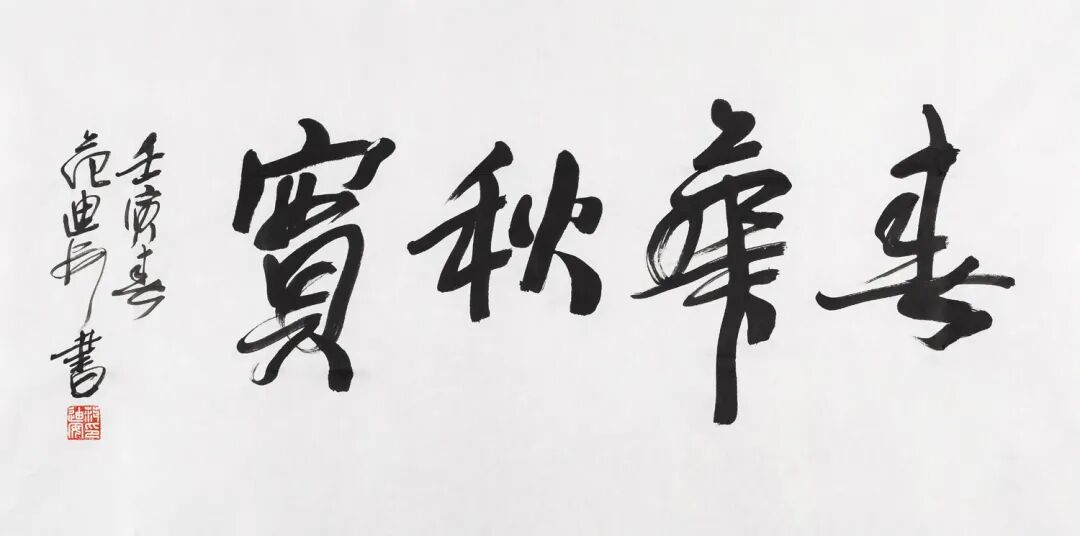 春華秋實
壬寅春
范迪安書